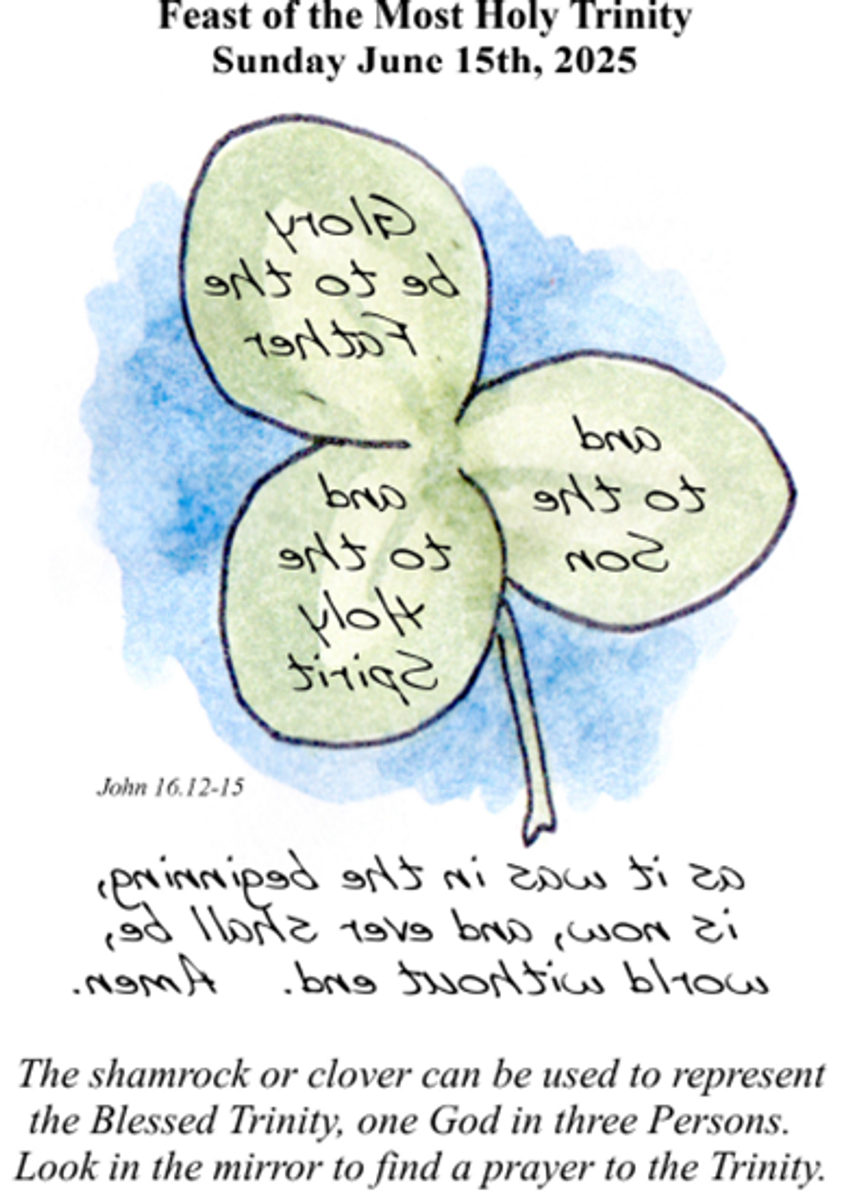 Feast of the Most Holy Trinity
Sunday June 15th, 2025
Glory
be to the
Father
and
to the
Son
and
to the
Holy
Spirit
John 16.12-15
as it was in the beginning,
is now, and ever shall be,
world without end. Amen.
The shamrock or clover can be used to represent
the Blessed Trinity, one God in three Persons.
Look in the mirror to find a prayer to the Trinity.